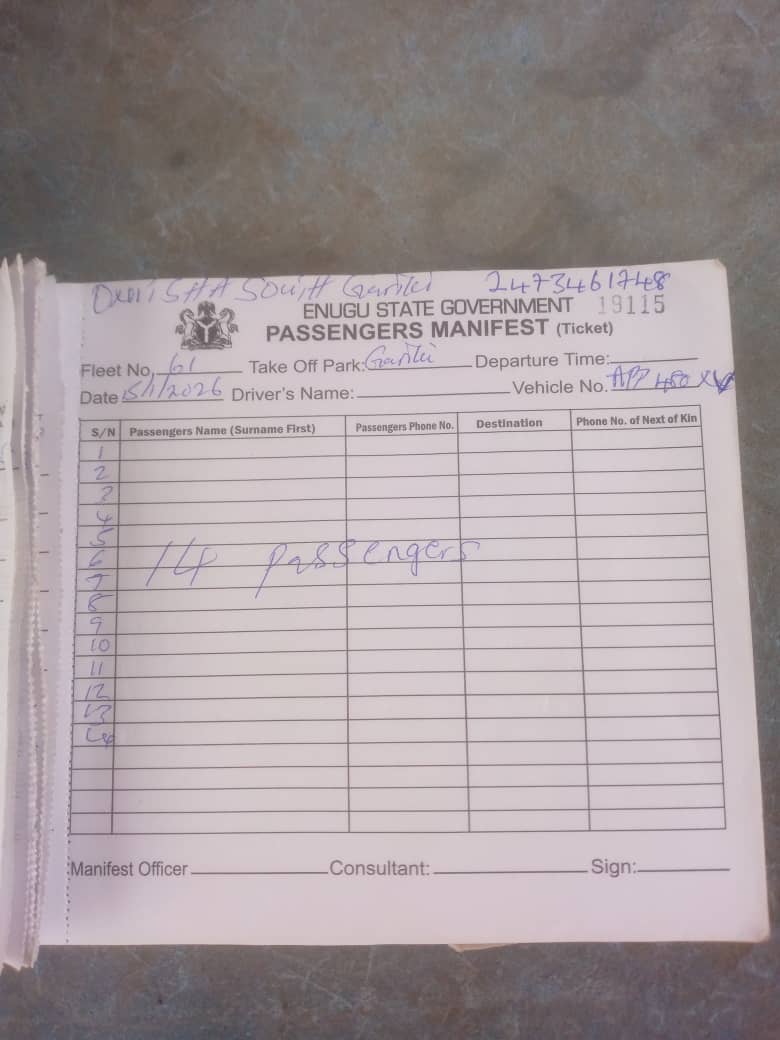 Onitsha South Gariki 2473461748
ENUGU STATE GOVERNMENT 19115
PASSENGERS MANIFEST (Ticket)
Fleet No. 61 Take Off Park: Gariki Departure Time:
Date 15/1/2026 Driver's Name: Vehicle No. APP 480 XV
S/N Passengers Name (Surname First) Passengers Phone No. Destination Phone No. of Next of Kin
1
2
3
4
5
6
14 passengers
7
8
9
10
11
12
13
14
Manifest Officer Consultant: Sign: